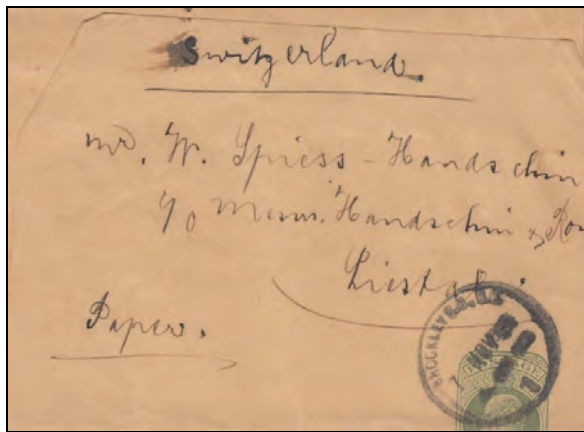 Switzerland.
Mr. W. Spiess-Handschin
c/o Messrs. Handschin & Ron
Liestal.
Paper.
BROCKLEY
7 NOV